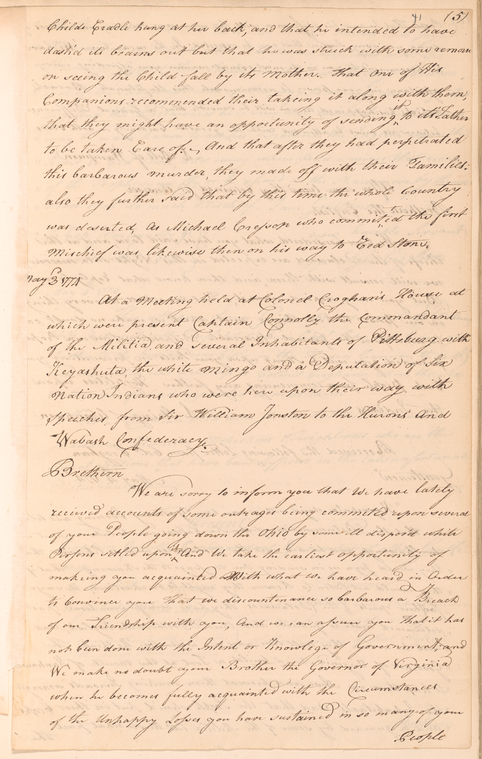 (5)
Childs Cradle hung at her back, and that he intended to have
dashd its brains out but that he was struck with some remorse
on seeing the Child fall by its Mother. That one of His
Companions recommended their taking it along with them,
that they might have an opportunity of sending it to its Father
to be taken Care of, And that after they had perpetrated
this barbarous murder, they made off with their Families.
also they further said that by this time the whole Country
was deserted, as Michael Cresop who commited the first
Mischief was likewise then on his way to Red Stone,
May 3d 1774
At a Meeting held at Colonel Croghan's House at
which were present Captain Connolly the Commandant
of the Militia and several Inhabitants of Pittsburg with
Keyashuta the white mingo and a Deputation of Six
Nation Indians who were here upon their way with
speeches from Sir William Jonston to the Hurons and
Wabash Confederacy.
Brethern
We are sorry to inform you that we have lately
received accounts of some outrages being commited upon several
of your People going down the Ohio by some ill disposd white
Persons settled upon it, And We take the earliest opportunity of
makeing you acquainted with what we have heard in Order
to Convince you that we discountenance so barbarous a Breach
of our Friendship with you, And we can assure you that it has
not been done with the Intent or Knowlege of Government, and
We make no doubt your Brother the Governor of Virginia
when he becomes fully acquainted with the Circumstances
of the Unhappy losses you have sustained in so many of your
People